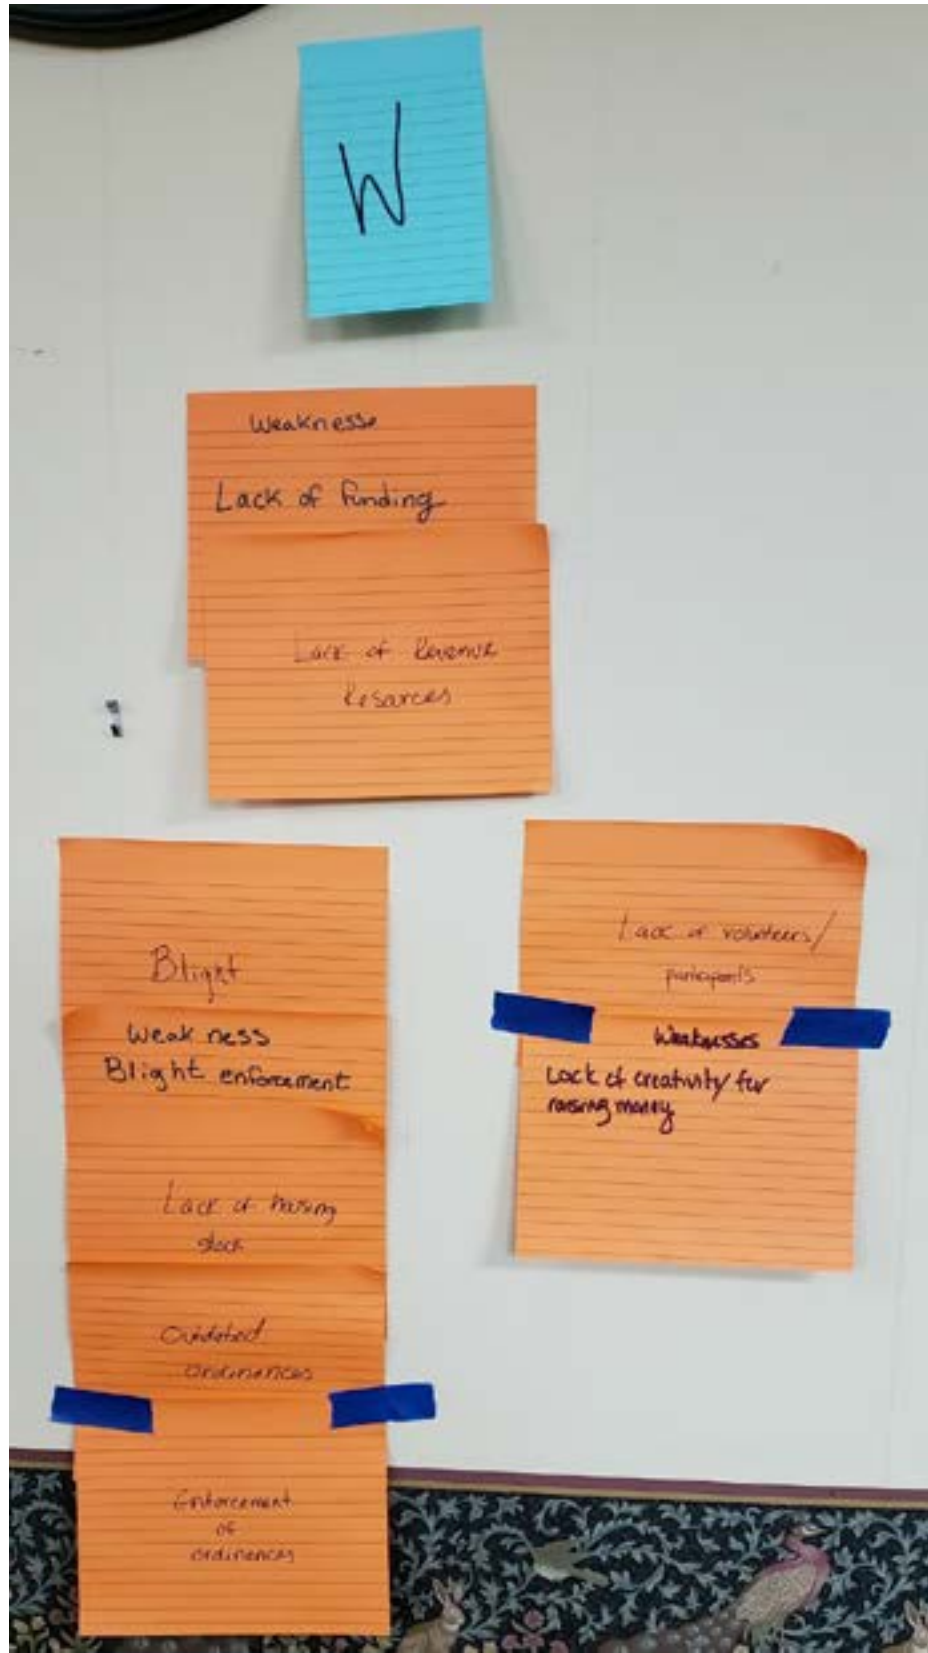 W
Weaknesse
Lack of funding
Lack of Revenue
Resarces
Blight
Weakness
Blight enforcement
Lack of housing
stock
Outdated
ordinances
Enforcement
of
ordinances
Lack of volunteers/
participants
Weaknesses
Lack of creativity for
raising money